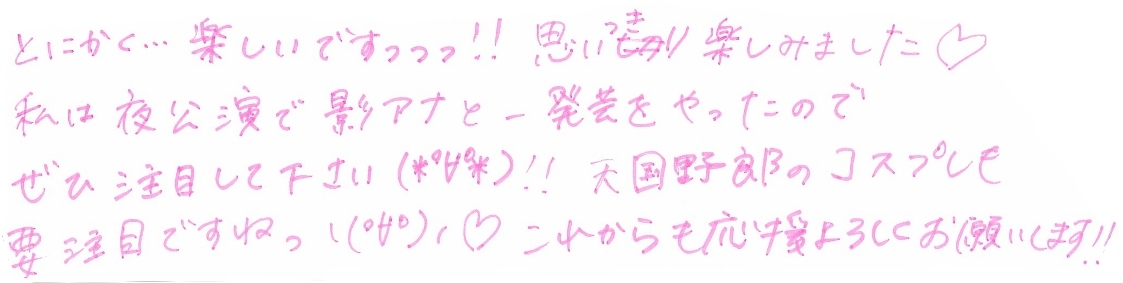 とにかく… 楽しいですっっっ!! 思いっきり楽しみました♡
私は夜公演で影アナと一発芸をやったので
ぜひ注目して下さい(*°∀°*)!! 天国野郎のコスプレも
要注目ですねっヽ(°∀°)ノ♡ これからも応援よろしくお願いします!!